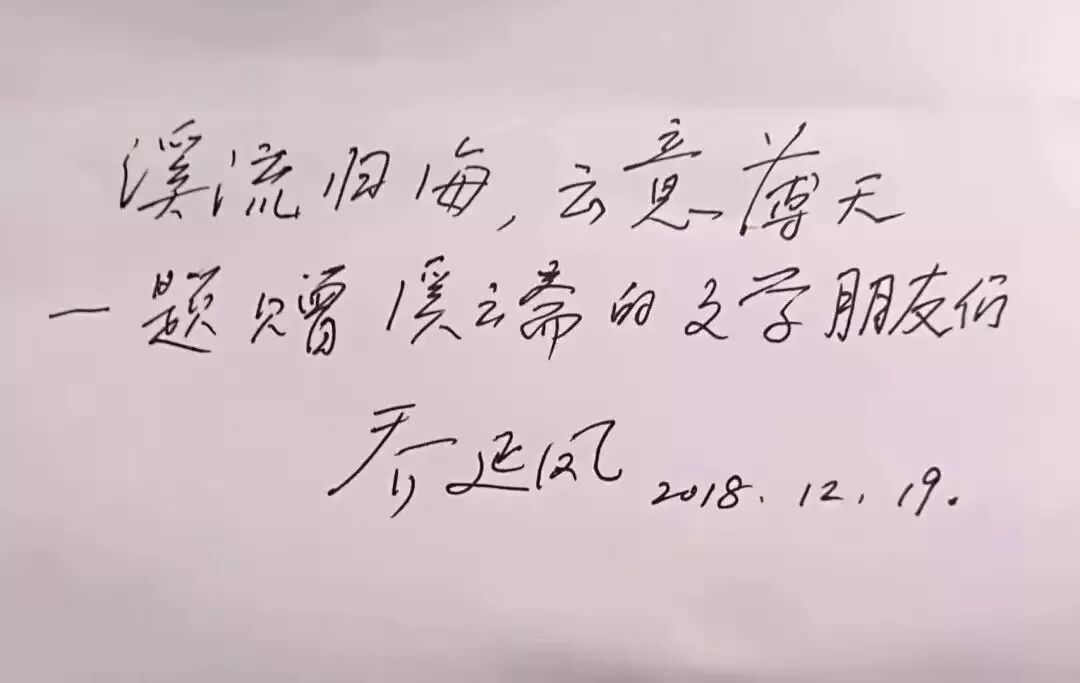 溪流归海,云意薄天
—题赠溪云斋的文学朋友们
乔延凤 2018.12.19.